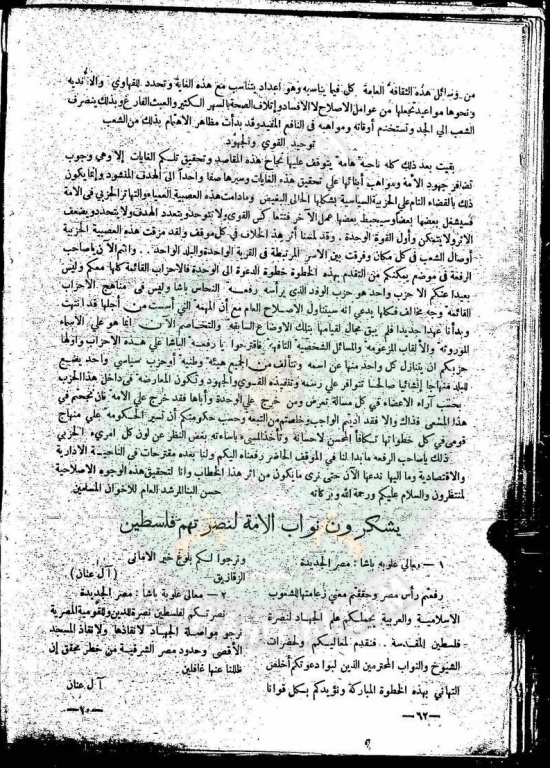 من وسائل هذه الثقافة العامة كل فيما يناسبه وهو اعداد يتناسب مع هذه الغاية وتحدد للقهاوي والأندية
ونحوها مواعيد تجعلها من عوامل الاصلاح لا الافساد وإتلاف الصحة بالسهر الكثير والعبث الفارغ وبذلك ينصرف
الشعب الى الجد وتستخدم أوقاته ومواهبه فى النافع المفيد وقد بدأت مظاهر الاهتمام بذلك من الشعب
توحيد القوي والجهود
بقيت بعد ذلك كله ناحية هامة يتوقف عليها نجاح هذه المقاصد وتحقيق تلكم الغايات إلا وهى وجوب
تضافر جهود الأمة ومواهب أبنائها على تحقيق هذه الغايات وسيرها صفا واحداً الى الهدف المنشود وإنما يكون
ذلك بالقضاء التام على الحزبية السياسية بشكلها الحالى البغيض ومادامت هذه العصبية العمياء والتهاتر الحزبي فى الأمة
فسيشغل بعضها بعضا وسيحبط بعضها عمل الآخر فتتعاكس القوى ولا تتوحد ويتعدد الهدف ولا يتحدد ويضعف
الأثر ولا يتمكن وأول القوة الوحدة . وقد لمسنا أثر هذا الخلاف فى كل موقف ولقد مزقت هذه العصبية الحزبية
أوصال الشعب فى كل مكان وفرقت بين الأسر المرتبطة فى القرية الواحدة والبلد الواحد .. وانتم الآن ياصاحب
الرفعة فى موضع يمكنكم من التقدم بهذه الخطوة خطوة الدعوة الى الوحدة فالاحزاب القائمة كلها معكم وليس
بعيدا عنكم الا حزب واحد هو حزب الوفد الذى يرأسه رفعة النحاس باشا وليس فى مناهج الأحزاب
القائمة وجه يخالف فكلها يدعى انه سيتناول الاصلاح العام مع أن المهمة التى أسست من أجلها قد انتهت
وبدأنا عهدا جديدا فلم يبق مجال لقيامها بتلك الاوضاع السابقة والتخاصم الآن انما هو على الأسماء
الموروثة والالقاب المزعومة والمسائل الشخصية التافهة فاقترحوا يا رفعة الباشا على هذه الأحزاب واولها
حزبكم ان يتنازل كل واحد منها عن اسمه وتتألف من الجميع هيئة وطنية أو حزب سياسي واحد يضع
للبلد منهاجا إنشائيا صالحا تتوافر على رسمه وتنفيذه القوى والجهود وتكون المعارضة فى داخل هذا الحزب
بحسب آراء الاعضاء فى كل مسألة تعرض ومن خرج على الوحدة وأباها فقد خرج على الامة فان نجحتم في
هذا المسعى فذاك والا فقد اديتم الواجب وخلصتم من التبعة وحسب حكومتكم أن تسير الحكومة على منهاج
قومى فى كل خطواتها تكافأ المحسن لاحسانه وتأخذ المسىء باساءته بغض النظر عن لون كل امرىء الحزبي
ذلك ياصاحب الرفعة مابدا لنا فى الموقف الحاضر رفعناه اليكم ولنا بعده مقترحات فى الناحية الادارية
والاقتصادية وما اليها ندعها الآن حتى نرى مايكون من اثر هذا الخطاب وانا لتحقيق هذه الوجوه الاصلاحية
لمنتظرون والسلام عليكم ورحمة الله وبركاته حسن البنا المرشد العام للاخوان المسلمين
يشكرون نواب الامة لنصرتهم فلسطين
١ — معالى علوبه باشا : مصر الجديدة
رفعتم رأس مصر وحققتم معنى زعامتها للشعوب
الاسلامية والعربية بحملكم علم الجهاد لنصرة
فلسطين المقدسة .. فنقدم لمعاليكم ولحضرات
الشيوخ والنواب المحترمين الذين لبوا دعوتكم أخلص
التهانى بهذه الخطوة المباركة ونؤيدكم بكل قوانا
ونرجوا لكم بلوغ خير الامانى
الزقازيق (آل عنان)
٢ — معالى علوبة باشا : مصر الجديدة
نصرتكم لفلسطين نصرة للدين والقومية المصرية
نرجو مواصلة الجهاد لانقاذها ولانقاذ المسجد
الأقصى وحدود مصر الشرقية من خطر محقق إن
ظللنا عنها غافلين
آل عنان
— ٦٢ —